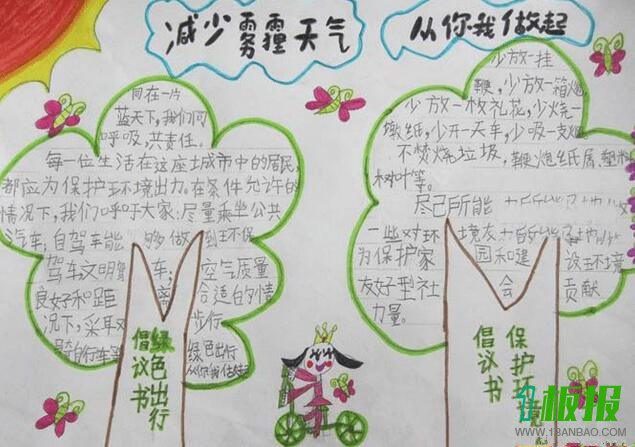 减少雾霾天气
从你我做起
同在一片
蓝天下,我们同
呼吸,共责任。
每一位生活在这座城市中的居民,
都应为保护环境出力。在条件允许的
情况下,我们呼吁大家:尽量乘坐公共
汽车;自驾车能够做到环保
驾车文明驾车;空气质量
良好和距离合适的情
况下,采取步行
骑自行车等
绿色出行
从你我做起
绿色出行
倡议书
少放一挂
鞭,少放一箱炮
少放一枝礼花,少烧一
墩纸,少开一天车,少吸一支烟
不焚烧垃圾,鞭炮纸屑
树叶等。
尽己所能
一些对环境友
为保护家园和建设环境
友好型社会贡献
力量。
保护环境
倡议书
板报
WWW.13ANBAO.COM